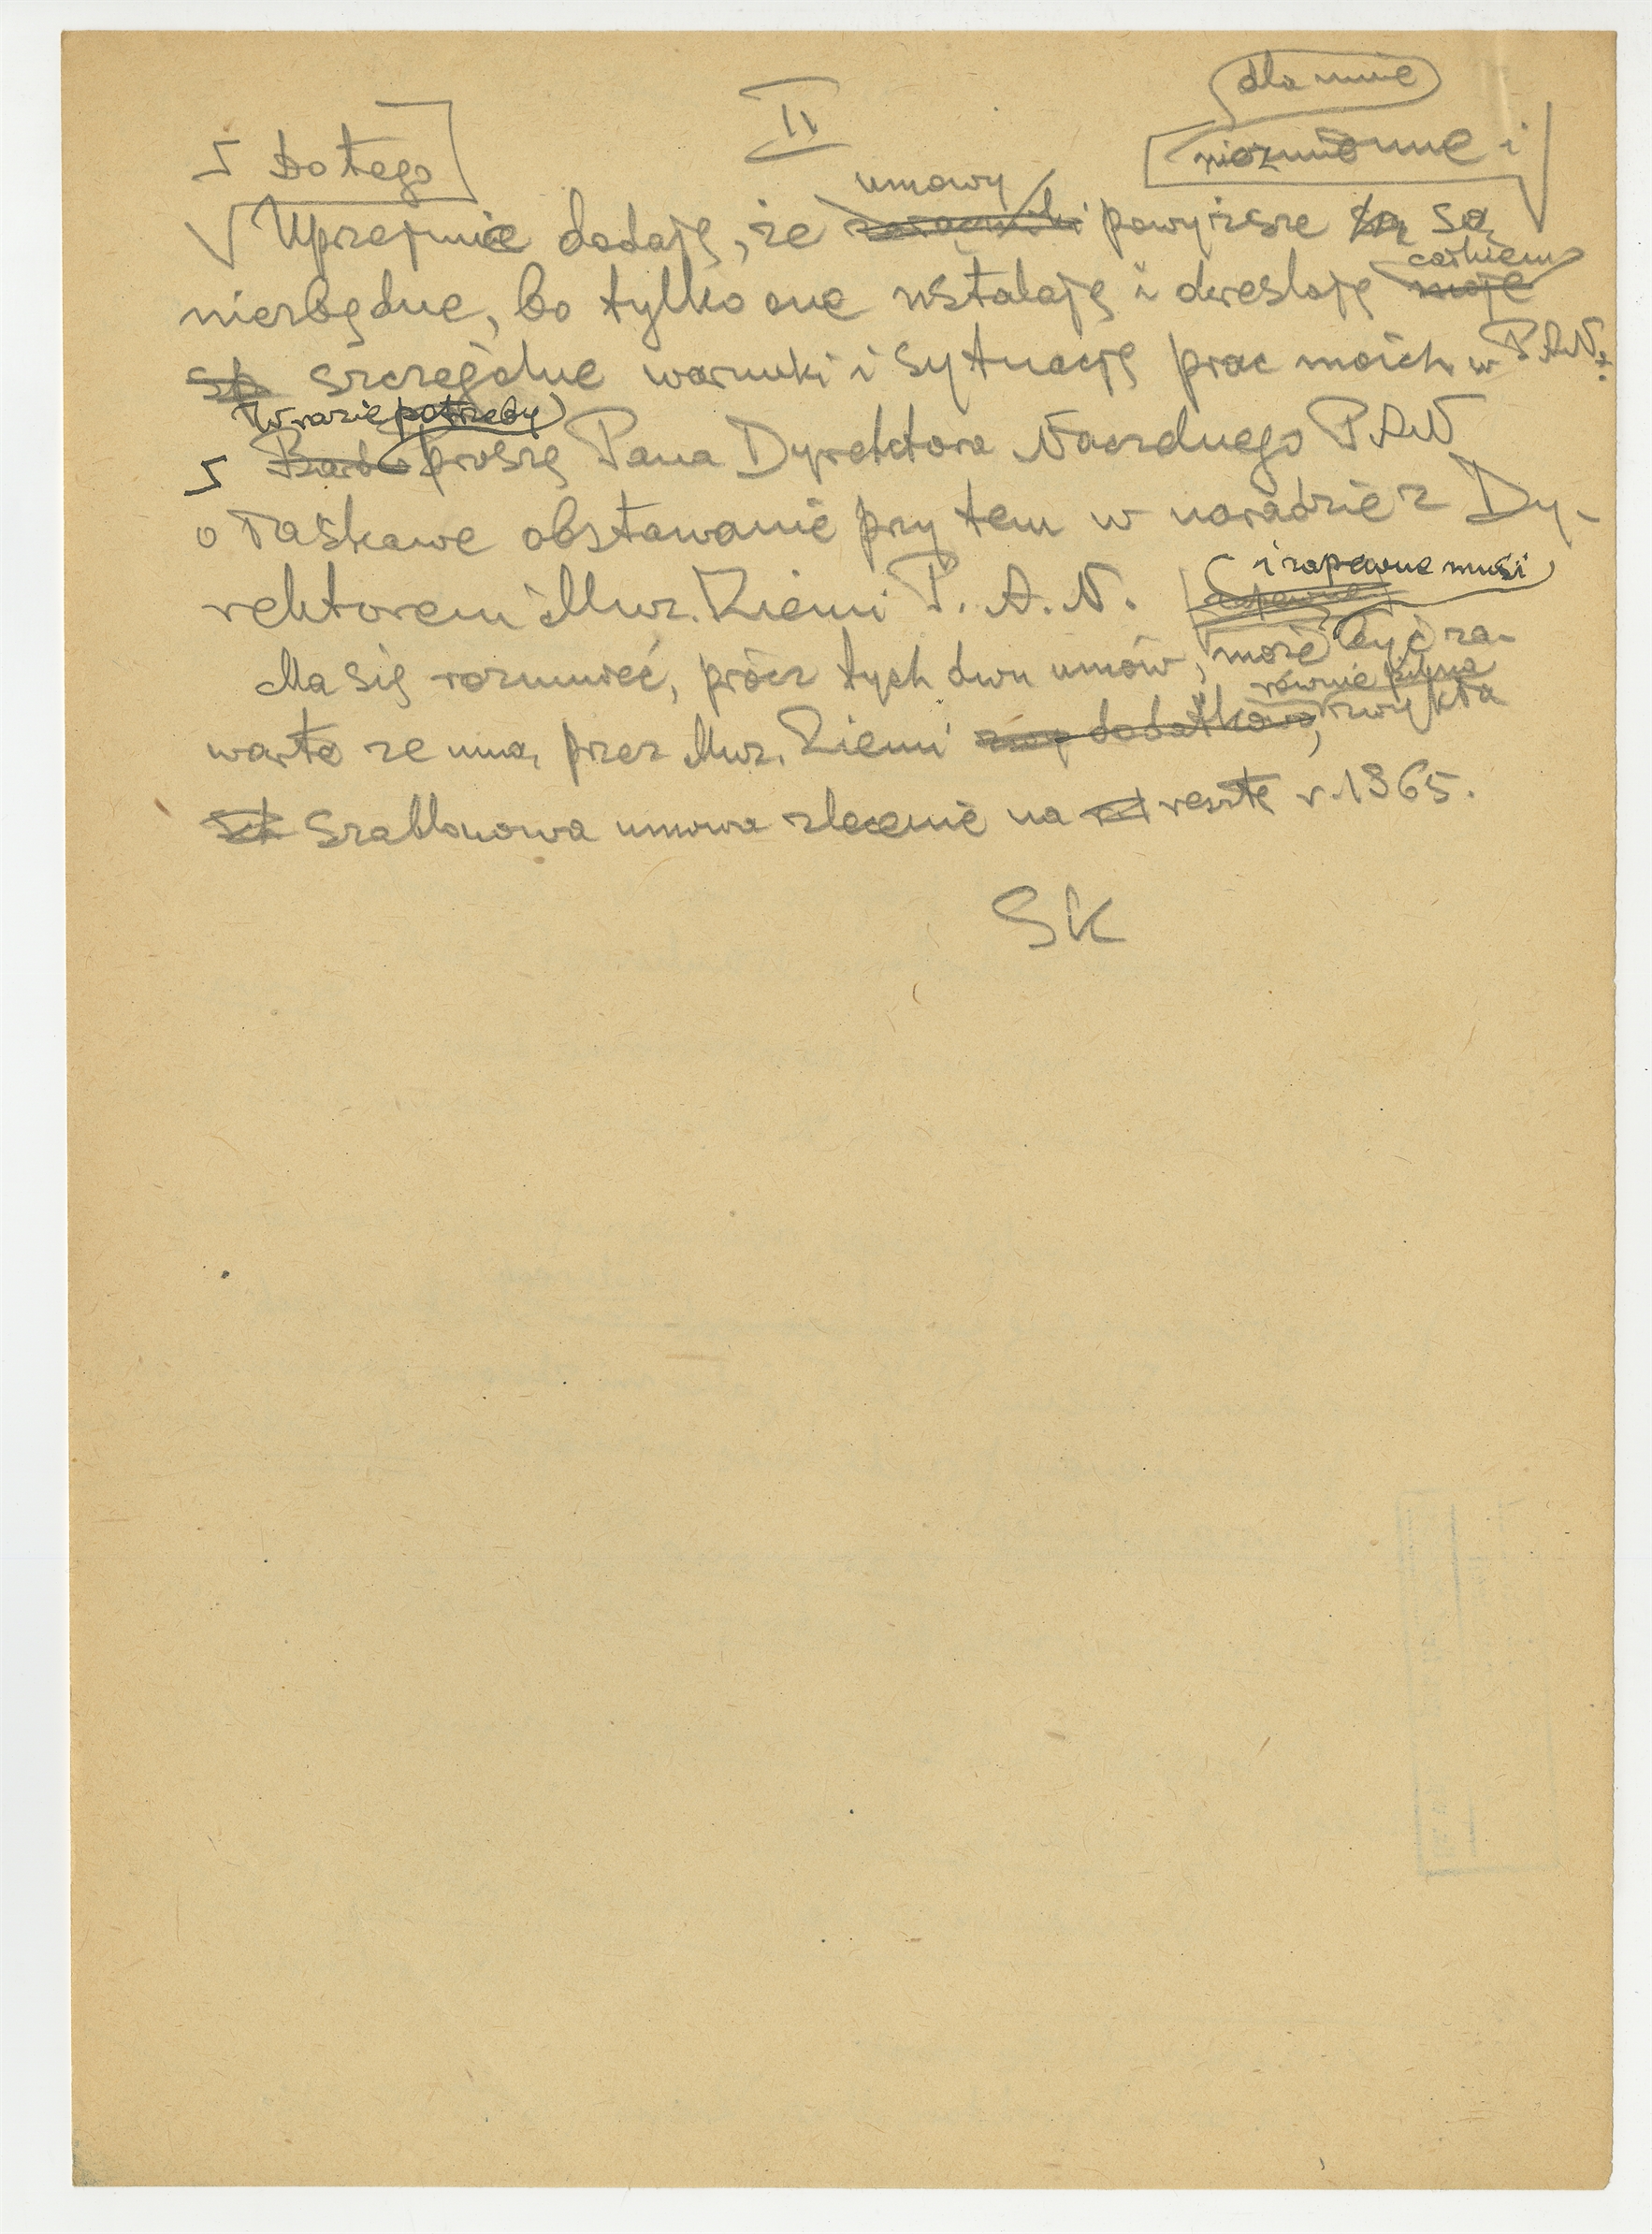 II
dla mnie
Do tego
niezmienne i
umowy
Uprzejmie dodaję, że powyższe są są
całkiem
niezbędne, bo tylko one ustalają i określają moje
szczególne warunki i sytuację prac moich w P.A.N.
W razie potrzeby
Bardzo proszę Pana Dyrektora Naczelnego PAN
o łaskawe obstawanie przy tem w naradzie z Dy-
i zapewne musi
rektorem Muz. Ziemi P. A. N. zapewne
Ma się rozumieć, prócz tych dwu umów, może być za-
równie pilna
warta ze mną przez Muz. Ziemi dodatkowa, zwykła
szablonowa umowa zlecenie na resztę r. 1965.
SK